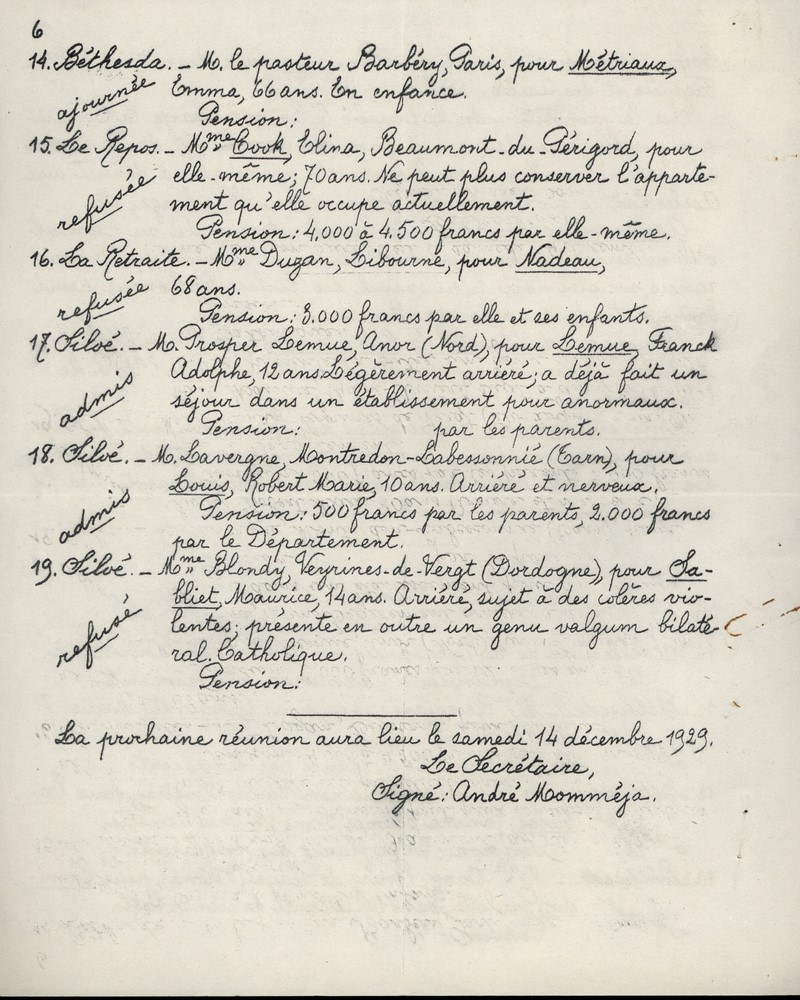 6
14. Béthesda. – M. le pasteur Barbéry, Paris, pour Métriaux,
ajournée
Emma, 66 ans. En enfance.
Pension:
15. Le Repos. – Mme Cook, Elina, Beaumont-du-Périgord, pour
refusée
elle-même; 70 ans. Ne peut plus conserver l'apparte-
ment qu'elle occupe actuellement.
Pension: 4.000 à 4.500 francs par elle-même.
16. La Retraite. – Mme Duzan, Libourne, pour Nadeau,
refusée
68 ans.
Pension: 3.000 francs par elle et ses enfants.
17. Siloé. – M. Prosper Lemue, Anor (Nord), pour Lemue, Franck
admis
Adolphe, 12 ans. Légèrement arriéré; a déjà fait un
séjour dans un établissement pour anormaux.
Pension: par les parents.
18. Siloé. – M. Lavergne, Montredon-Labessonnié (Tarn), pour
admis
Louis, Robert Marie, 10 ans. Arriéré et nerveux.
Pension: 500 francs par les parents, 2.000 francs
par le Département.
19. Siloé. – Mme Blondy, Veyrines-de-Vergt (Dordogne), pour Sa-
refusé
bliet, Maurice, 14 ans. Arriéré, sujet à des colères vio-
lentes; présente en outre un genu valgum bilaté-
ral. Catholique.
Pension:
La prochaine réunion aura lieu le samedi 14 décembre 1929.
Le Secrétaire,
Signé: André Momméja.